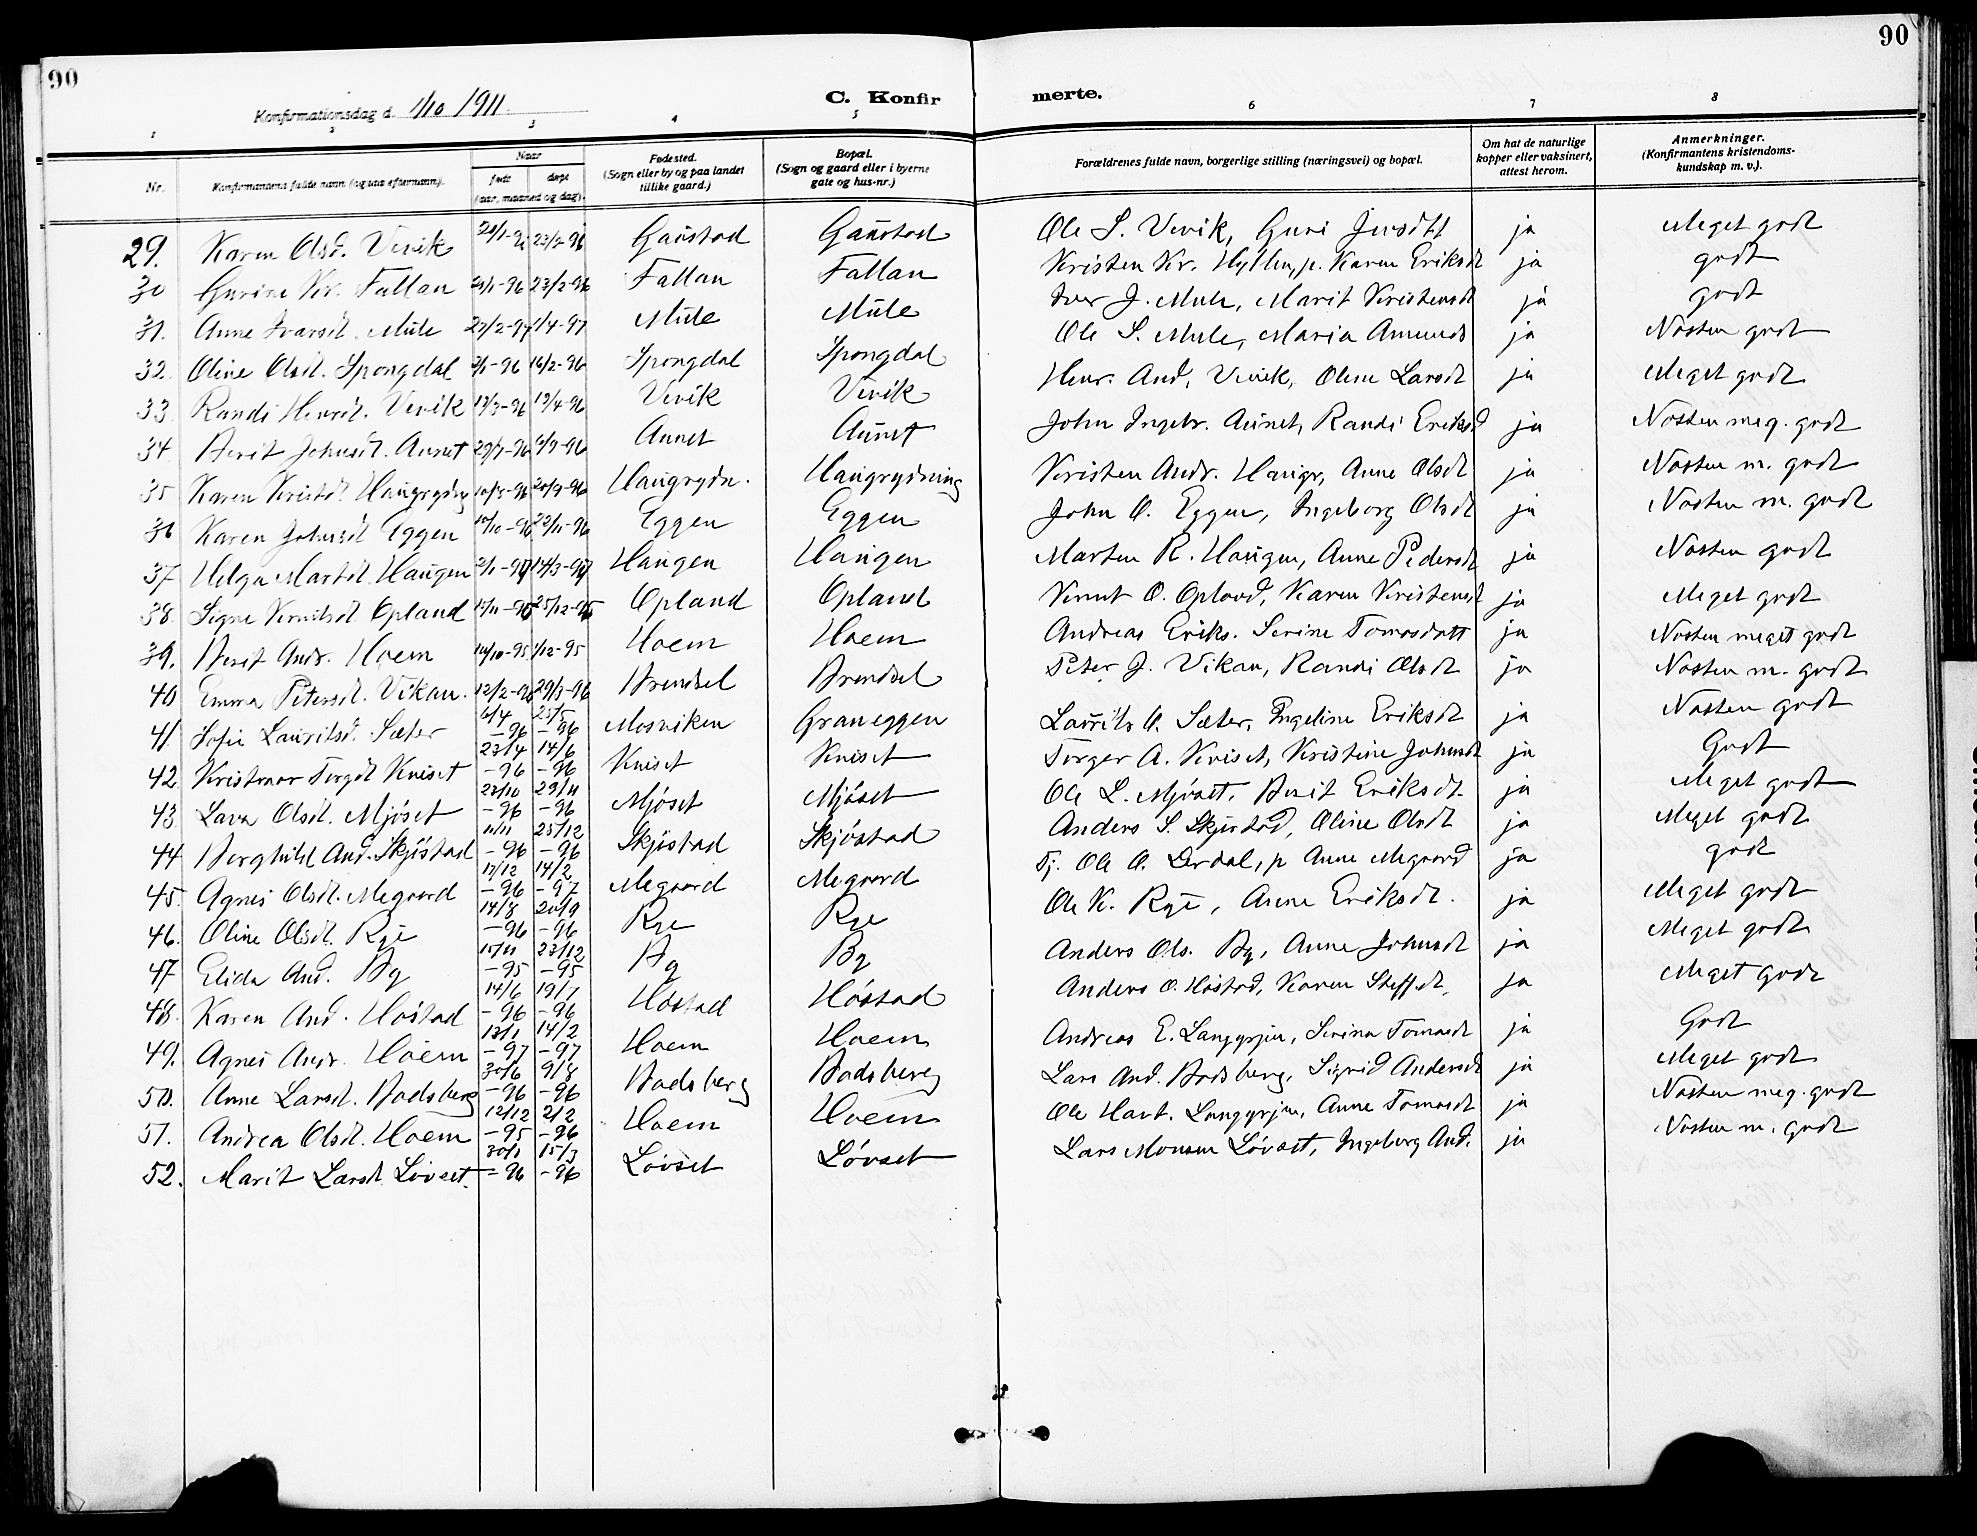 90
90
Konfirmationsdag d. 1/10 1911.
C. Konfirmerte.
1 2 3 4 5 6 7 8
Nr. Konfirmantens fulde navn (ogsaa efternavn). Naar født døpt (aar, maaned og dag). Fødested. (Sogn eller by og paa landet tillike gaard.) Bopæl. (Sogn og gaard eller i byerne gate og hus-nr.) Forældrenes fulde navn, borgerlige stilling (næringsvei) og bopæl. Om hat de naturlige kopper eller vaksinert, attest herom. Anmerkninger. (Konfirmantens kristendoms-kundskap m. v.).
29. Karen Olsd. Vevik 23/2-96 Gaustad Gaustad Ole S. Vevik, Guri ja Meget godt
30 Gurine Kr. Fallan 23/2-96 Fallan Fallan Kristen Kr. p. Karen Eriksdt ja godt
31. Anne Ivarsdt. Mule 1/4-97 Mule Mule Iver J. Mule, Marit Kristensdt ja godt
32. Oline Olsdt. Spongdal 16/2-96 Spongdal Spongdal Ole S. Mule, Maria Amunds ja Næsten godt
33 Randi Henrdt. Vevik 13/3-96 19/4-96 Vevik Vevik Henr. And. Vevik, Oline Larsdt ja Meget godt
34 Berit Johnsdt. Aunet Aunet Aunet John Ingebr. Aunet, Randi Eriksd ja Næsten meg. godt
35 Karen Kristd. Haugrydng 20/9-96 Haugrydn. Haugrydning Kristen Andr. Haugr, Anne Olsdt ja Næsten m. godt
36 Karen Johnsdt Eggen 22/11-96 Eggen Eggen John O. Eggen, Ingeborg Olsdt ja Næsten m. godt
37 Helga Martdt. Haugen 14/3-97 Haugen Haugen Marten R. Haugen, Anne Pedersdt ja Næsten godt
38. Signe Knutsdt Opland 15/11-95 25/12-95 Opland Opland Knut O. Opland, Karen Kristensdt ja Meget godt
39. Berit Andr. Hoem 14/10-95 1/12-95 Hoem Hoem Andreas Eriks. Serine Tomasdatt ja Næsten meget godt
40 Emma Petersdt. Vikan. 12/2-96 29/3-96 Brendsel Brendsel Peter J. Vikan, Randi Olsdt ja Næsten m. godt
41. Sofie Lauritsd. Sæter 6/4-96 25/5-96 Mosviken Graneggen Laurits O. Sæter, Ingeline Eriksdt ja Næsten godt
42. Torgdt Kviset 23/4-96 14/6-96 Kviset Kviset Torger A. Kviset, Kristine Johnsdt ja Godt
43. Lava Olsdt. Mjøset 23/10-96 29/11-96 Mjøset Mjøset Ole L. Mjøset, Berit Eriksdt. ja Meget godt
44 Borghild And. Skjøstad 11/11-96 25/12-96 Skjøstad Skjøstad Anders S. Skjøstad, Oline Olsdt ja Meget godt
45. Agnes Olsdt. Megaard 17/12-96 14/2-97 Megaard Megaard Tj. Ole O. p Anne Megaard ja godt
46. Oline Olsdt. Rye 14/8-96 20/9-96 Rye Rye Ole K. Rye, Anne Eriksdt. ja Meget godt
47 Elida And. By 15/11-95 23/12-95 By By Anders Ols. By, Anne Johnsdt ja Meget godt
48. Karen And. Høstad 14/6-96 19/7-96 Høstad Høstad Anders O. Høstad, Karen Steffdt. ja Meget godt
49. Agnes Andr. Hoem 13/1-97 14/2-97 Hoem Hoem Andreas E. Langgrjen, Serina Tomasdt ja Godt
50. Anne Larsdt. Bodsberg 30/6-96 9/8-96 Bodsberg Bodsberg Lars And. Bodsberg, Sigrid Andersdt ja Meget godt
51. Andrea Olsdt. Hoem 12/12-95 2/2-96 Hoem Hoem Ole Langgrjen, Anne Tomasdt ja Næsten meg. godt
52. Marit Larsdt Løvset 30/1-96 15/3-96 Løvset Løvset Lars Monsen Løvset, Ingeborg And. ja Næsten m. godt